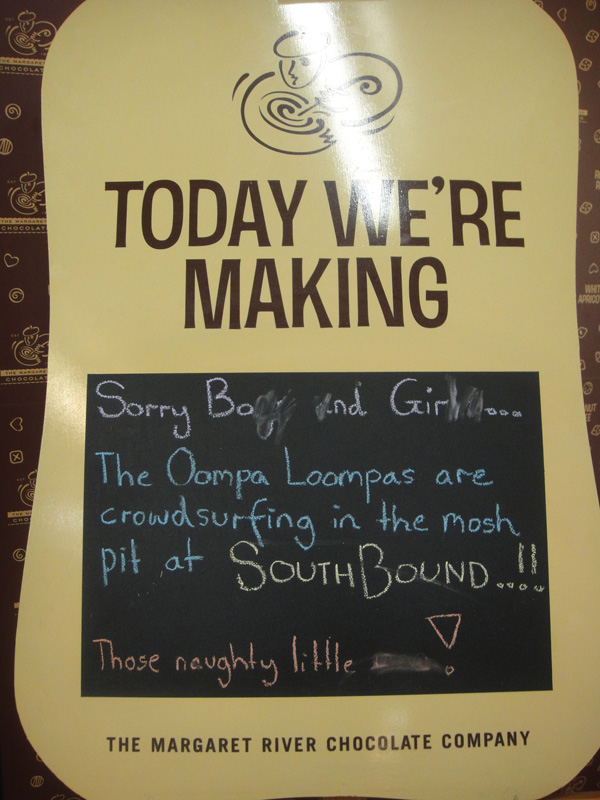 TODAY WE'RE
MAKING
Sorry
The Oompa Loompas are
crowdsurfing in the mosh
pit at SOUTHBOUND...!!
Those naughty little !
THE MARGARET RIVER CHOCOLATE COMPANY